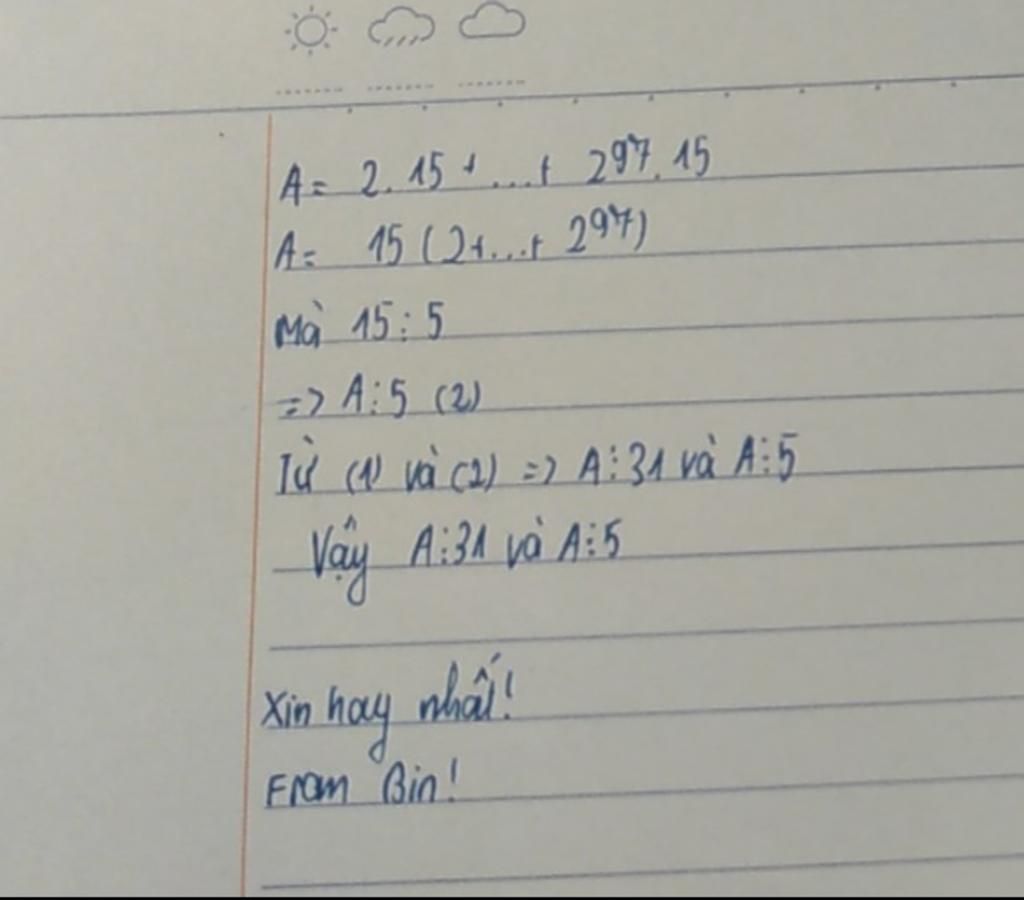 A = 2.15 + ... + 2⁹⁷.15
A = 15 (2 + ... + 2⁹⁷)
Mà 15 ⋮ 5
=> A ⋮ 5 (2)
Từ (1) và (2) => A ⋮ 31 và A ⋮ 5
Vậy A ⋮ 31 và A ⋮ 5
Xin hay nhất!
From Bin!